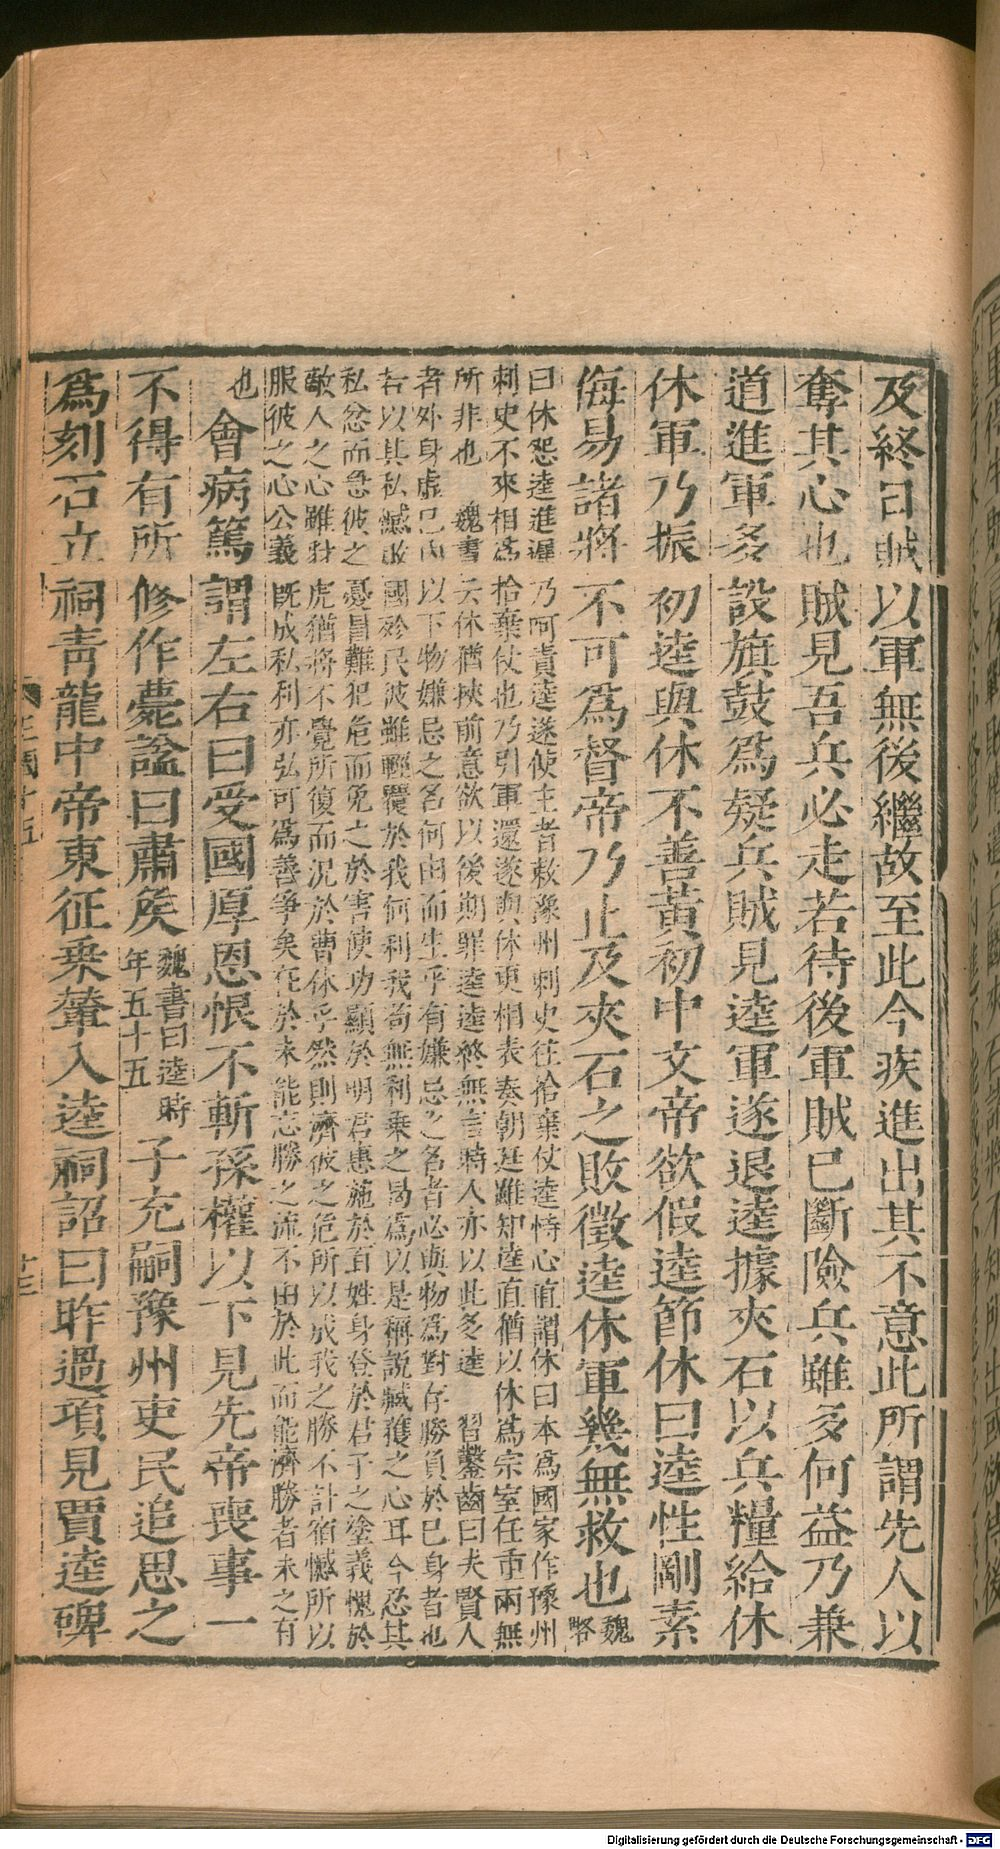 及終日賊以軍無後繼故至此今疾進出其不意此所謂先人以
奪其心也賊見吾兵必走若待後軍賊已斷險兵雖多何益乃兼
道進軍多設旗鼓爲疑兵賊見逵軍遂退逵據夾石以兵糧給休
休軍乃振初逵與休不善黃初中文帝欲假逵節休曰逵性剛素
侮易諸將不可爲督帝乃止及夾石之敗微逵休軍幾無救也魏略
曰休怨逵進遲乃呵責逵遂使主者敕豫州刺史往拾棄仗逵恃心直謂休曰本爲國家作豫州
刺史不來相爲拾棄仗也乃引軍還遂與休更相表奏朝廷雖知逵直猶以休爲宗室任重兩無
所非也　魏書云休猶挾前意欲以後期罪逵逵終無言時人亦以此多逵　習鑿齒曰夫賢人
者外身虛己內以下物嫌忌之名何由而生乎有嫌忌之名者必與物爲對存勝負於己身者也
若以其私憾敗國殄民彼雖輕覆於我何利我苟無利乘之曷爲以是稱説臧獲之心耳今忍其
私忿而急彼之憂冒難犯危而免之於害使功顯於明君惠施於百姓身登於君子之塗義愧於
敵人之心雖豺虎猶將不覺所復而況於曹休乎然則濟彼之危所以成我之勝不計宿憾所以
服彼之心公義既成私利亦弘可爲善爭矣在於未能忘勝之流不由於此而能濟勝者未之有
也　會病篤謂左右曰受國厚恩恨不斬孫權以下見先帝喪事一
不得有所修作薨諡曰肅矦魏書曰逵時年五十五子充嗣豫州吏民追思之
爲刻石立祠青龍中帝東征乘輦入逵祠詔曰昨過項見賈逵碑
三國十五
十三
Digitalisierung gefördert durch die Deutsche Forschungsgemeinschaft - DFG